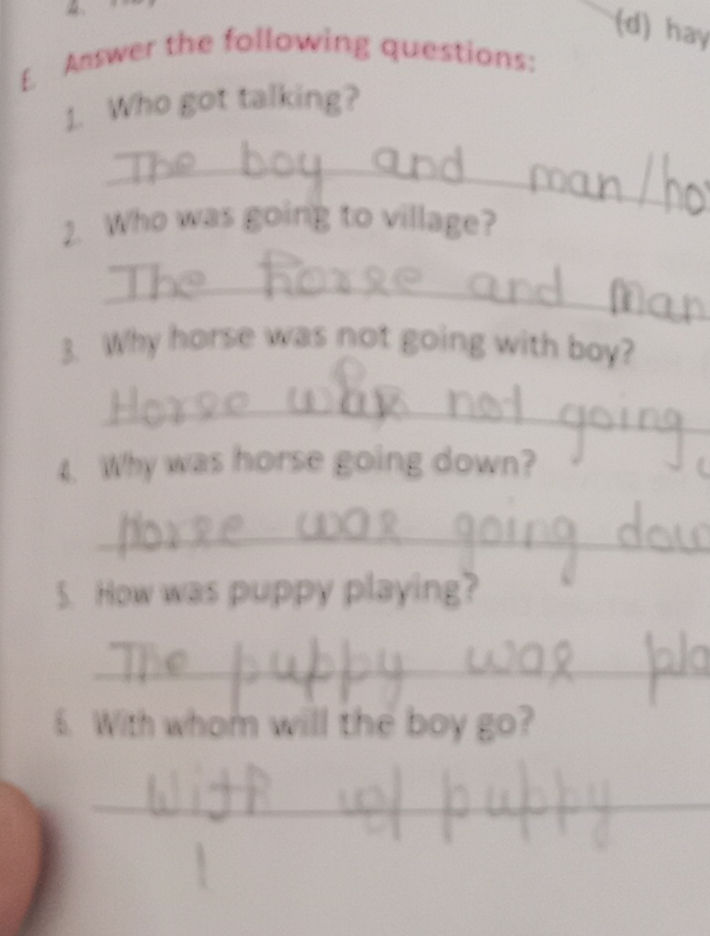 (d) hay
E. Answer the following questions:
1. Who got talking?
The boy and man/ho
2. Who was going to village?
The horse and man
3. Why horse was not going with boy?
Horse was not going
4. Why was horse going down?
Horse was going dow
5. How was puppy playing?
The puppy was pla
6. With whom will the boy go?
With puppy